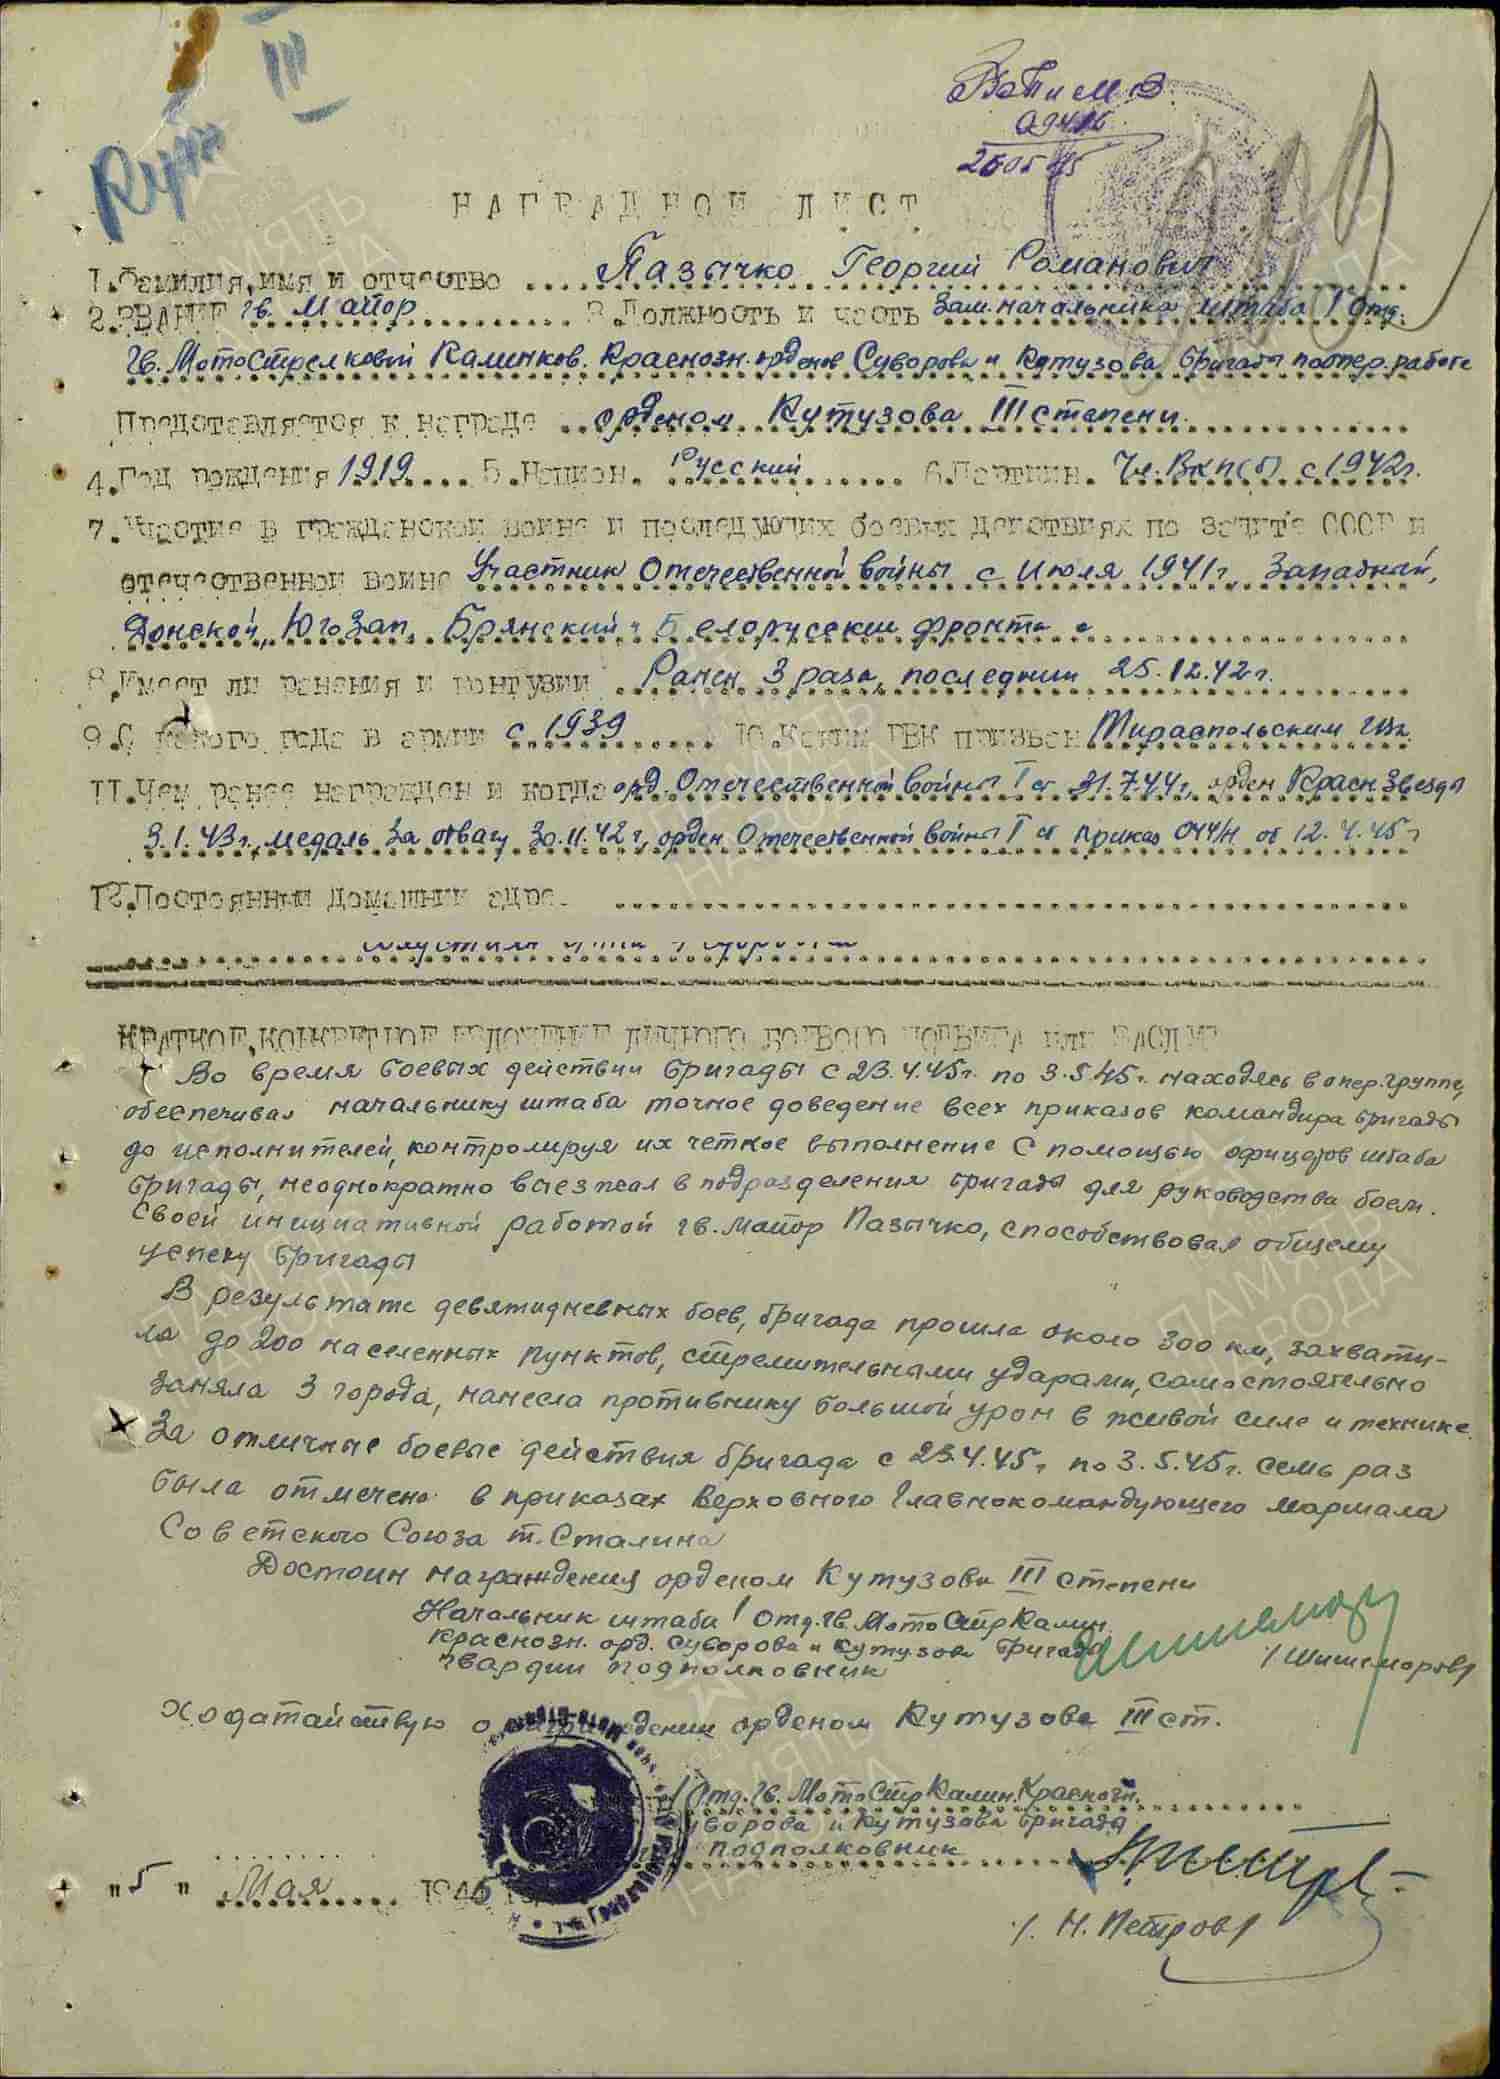 III
Кут
26 05 45
НАГРАДНОЙ ЛИСТ
1. Фамилия, имя и отчество Пазычко Георгий Романович
2. ЗВАНИЕ гв. Майор 3. Должность и часть Зам. начальника штаба 1 Отд.
Гв. МотоСтрелковой Калинков. Краснозн. орденов Суворова и Кутузова бригады по опер. работе
Представляется к награде орденом Кутузова III степени.
4. Год рождения 1919 5. Национ. Русский 6. Партийн. Чл. ВКП(б) с 1942г.
7. Участие в гражданской войне и последующих боевых действиях по защите СССР и
отечественной войне Участник Отечественной войны с Июля 1941г. Западный,
Донской, ЮгоЗап, Брянский, Белорусский фронта
8. Имеет ли ранения и контузии Ранен 3 раза, последний 25.12.42г.
9. С какого года в армии с 1939 10. Каким ГВК призван Тираспольским гвк.
11. Чем ранее награжден и когда орд. Отечественной войны I ст 31.7.44г, орден Красн. Звезда
3.1.43г., медаль За отвагу 30.11.42г, орден Отечественной войны I ст приказ 044/н от 12.4.45г
12. Постоянный домашний адре.
КРАТКОЕ, КОНКРЕТНОЕ ИЗЛОЖЕНИЕ ЛИЧНОГО БОЕВОГО ПОДВИГА ИЛИ ЗАСЛУГ
Во время боевых действий бригады с 23.4.45г. по 3.5.45г. находясь в опер. группе,
обеспечивал начальнику штаба точное доведение всех приказов командира бригады
до исполнителей, контролируя их четкое выполнение с помощью офицеров штаба
бригады, неоднократно выезжал в подразделения бригады для руководства боем.
Своей инициативной работой гв. майор Пазычко, способствовал общему
успеху бригады
В результате девятидневных боев, бригада прошла около 300 км, захвати-
ла до 200 населенных пунктов, стремительными ударами, самостоятельно
заняла 3 города, нанесла противнику большой урон в живой силе и технике.
За отличные боевые действия бригада с 23.4.45г по 3.5.45г. семь раз
была отмечена в приказах Верховного Главнокомандующего маршала
Советского Союза т. Сталина
Достоин награждения орденом Кутузова III степени
Начальник штаба 1 Отд. Гв. МотоСтр Калин.
Краснозн. орд. Суворова и Кутузова бригады
гвардии подполковник /Шишеморов/
Ходатайствую о награждении орденом Кутузова III ст.
1 Отд. Гв. МотоСтр Калин. Краснозн.
Суворова и Кутузова бригады
подполковник
"5" Мая 1945
/. Н. Петров/